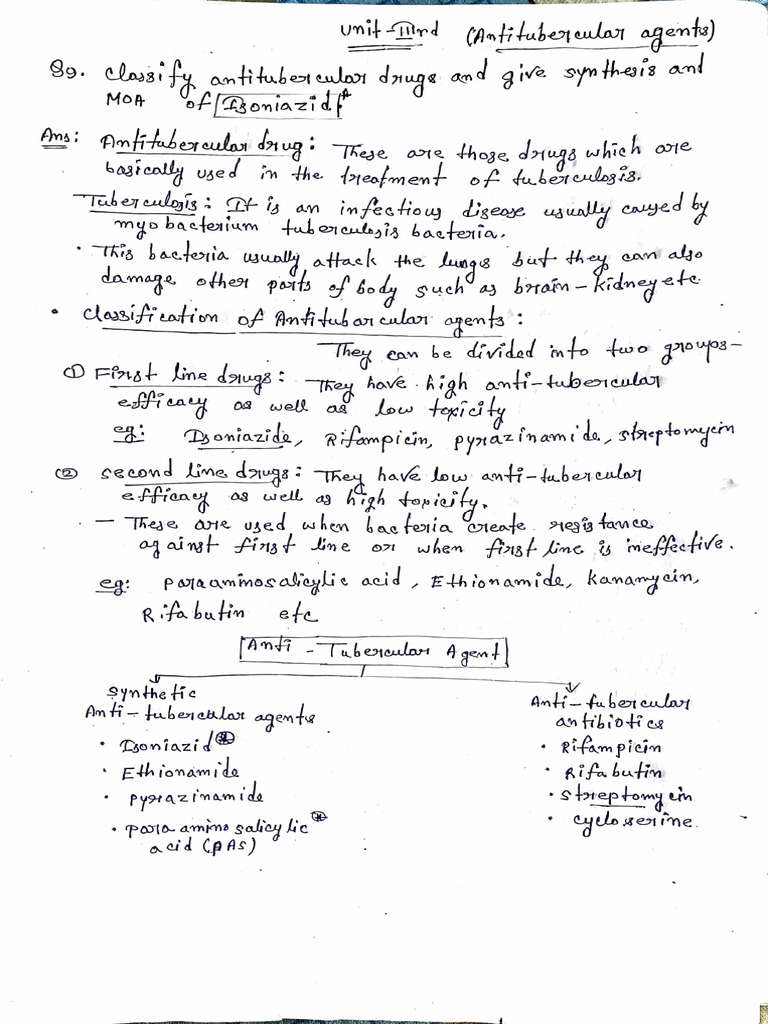 Unit-IIIrd (Antitubercular agents)
89. Classify antitubercular drugs and give synthesis and
MOA of Isoniazid*
Ans: Antitubercular drug: These are those drugs which are
basically used in the treatment of tuberculosis.
Tuberculosis: It is an infectious disease usually caused by
myobacterium tuberculosis bacteria.
· This bacteria usually attack the lungs but they can also
damage other parts of body such as brain-kidney etc
• Classification of Antitubarcular agents:
They can be divided into two groups-
① First line drugs: They have high anti-tubercular
efficacy as well as low toxicity
eg: Isoniazide, Rifampicin, pyrazinamide, streptomycin
② Second line drugs: They have low anti-tubercular
efficacy as well as high toxicity.
- These are used when bacteria create resistance
against first line or when first line is ineffective.
eg: para aminosalicylic acid, Ethionamide, Kanamycin,
Rifabutin etc
Anti-Tubercular Agent
Synthetic
Anti-tubercular agents
• Isoniazid*
• Ethionamide
• pyrazinamide
• para amino salicylic*
acid (PAS)
Anti-tubercular
antibiotics
• Rifampicin
• Rifabutin
• streptomycin
• cycloserine